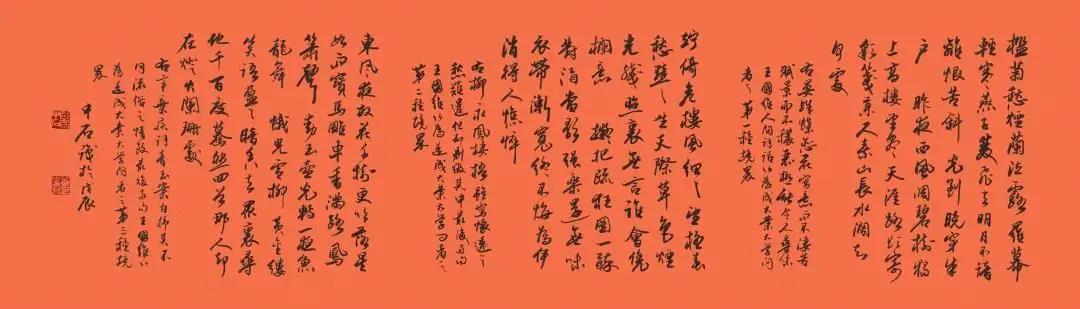 檻菊愁煙蘭泣露羅幕
輕寒燕子雙飛去明月不諳
離恨苦斜光到曉穿朱
户 昨夜西風凋碧樹獨
上高樓望盡天涯路欲寄
彩箋兼尺素山長水闊知
何處
右晏殊蝶戀花寫意而不淒苦
賦景而不穠麗極能令人尋味
王國維人間詞話以爲成大業大學問
者之第一種境界
佇倚危樓風細々望極春
愁黯々生天際草色煙
光殘照裏無言誰會憑
欄意 擬把疏狂圖一醉
對酒當歌強樂還無味
衣帶漸寬終不悔爲伊
消得人憔悴
右柳永鳳棲梧雖寫懷遠之
愁難遣但却刻其中最後兩句
王國維以爲是成大業大學問者之
第二種境界
東風夜放花千樹更吹落星
如雨寶馬雕車香滿路鳳
簫聲動玉壺光轉一夜魚
龍舞 蛾兒雪柳黃金縷
笑語盈々暗香去衆裏尋
他千百度驀然回首那人却
在燈火闌珊處
右辛棄疾詞青玉案自其不
同流俗之情致最後兩句王國維以
爲是成大業大學問者之第三種境
界
中石識於戊辰